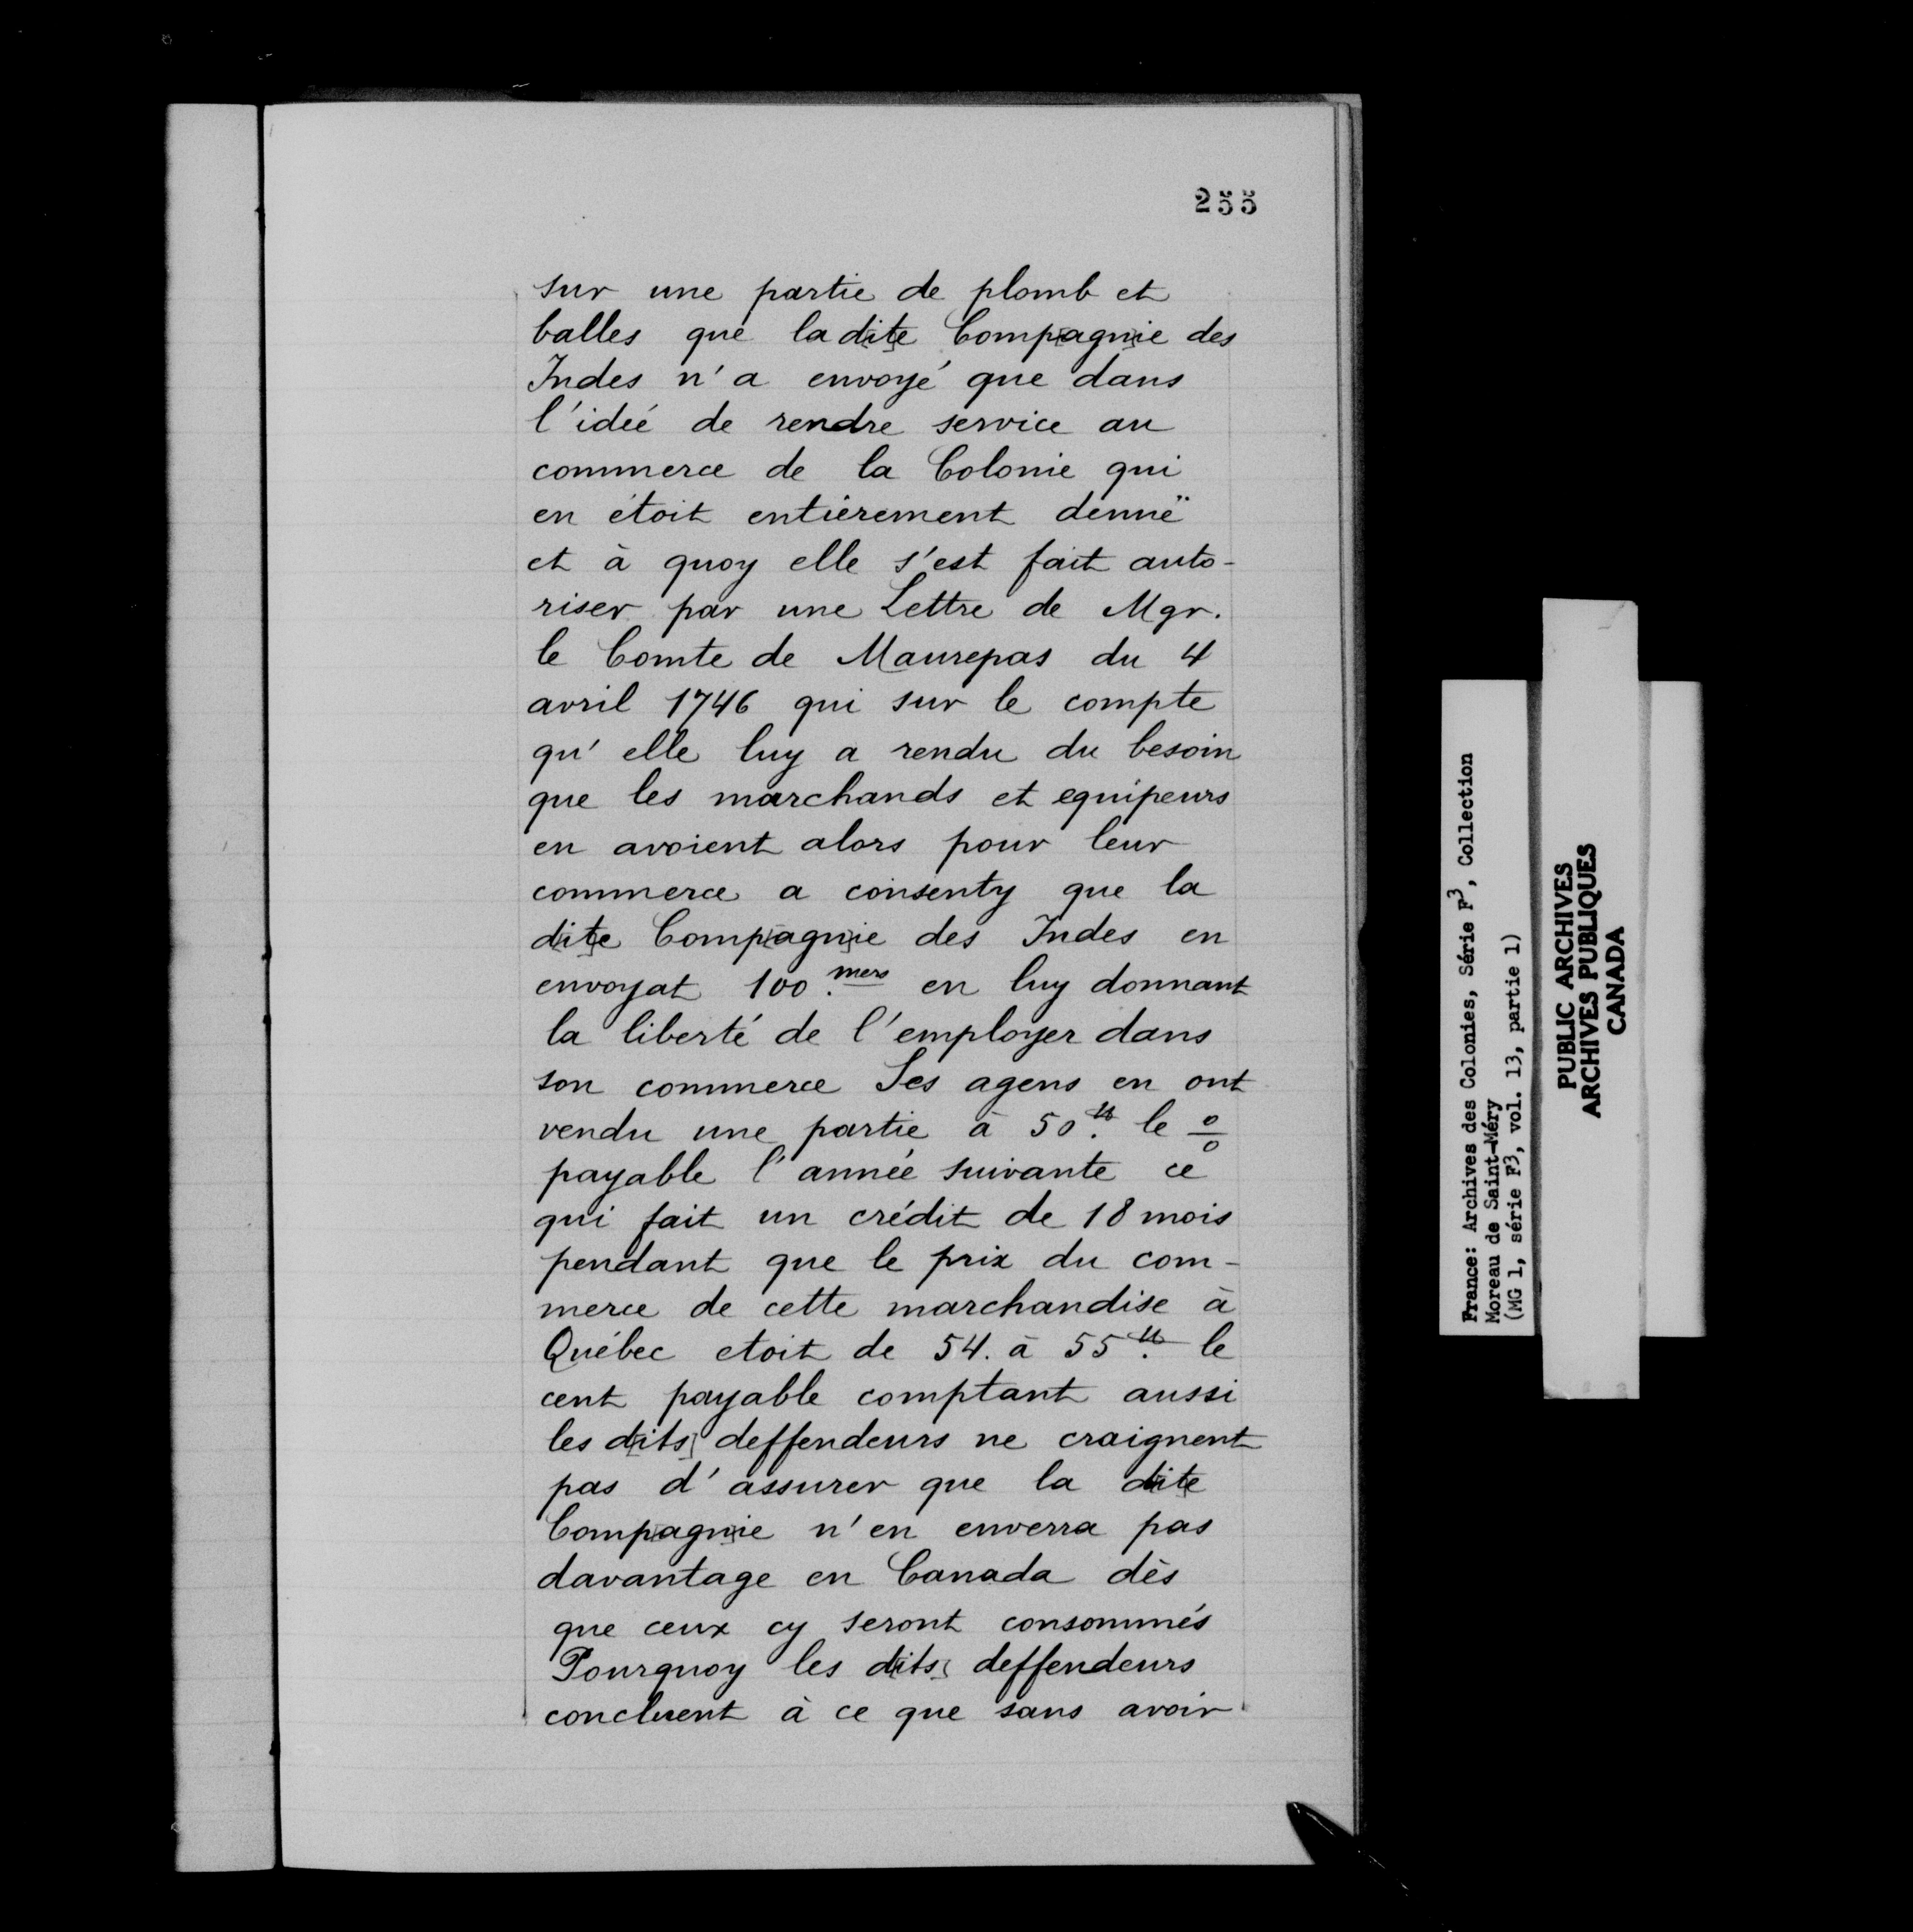 255
sur une partie de plomb et
balles que la d[it]e Comp[agn]ie des
Indes n'a envoyé que dans
l'idée de rendre service au
commerce de la Colonie qui
en étoit entièrement denuë
et à quoy elle s'est fait auto-
riser par une Lettre de Mgr.
le Comte de Maurepas du 4
avril 1746 qui sur le compte
qu'elle luy a rendu du besoin
que les marchands et equipeurs
en avoient alors pour leur
commerce a consenty que la
d[it]e Comp[agn]ie des Indes en
envoyat 100.mers en luy donnant
la liberté de l'employer dans
son commerce Ses agens en ont
vendu une partie à 50.tt le o/o
payable l'année suivante ce
qui fait un crédit de 18 mois
pendant que le prix du com-
merce de cette marchandise à
Québec etoit de 54. à 55.tt le
cent payable comptant aussi
les d[its] deffendeurs ne craignent
pas d'assurer que la d[it]e
Comp[agn]ie n'en enverra pas
davantage en Canada dès
que ceux cy seront consommés
Pourquoy les d[its] deffendeurs
concluent à ce que sans avoir
France: Archives des Colonies, Série F3, Collection
Moreau de Saint-Méry
(MG 1, série F3, vol. 13, partie 1)
PUBLIC ARCHIVES
ARCHIVES PUBLIQUES
CANADA